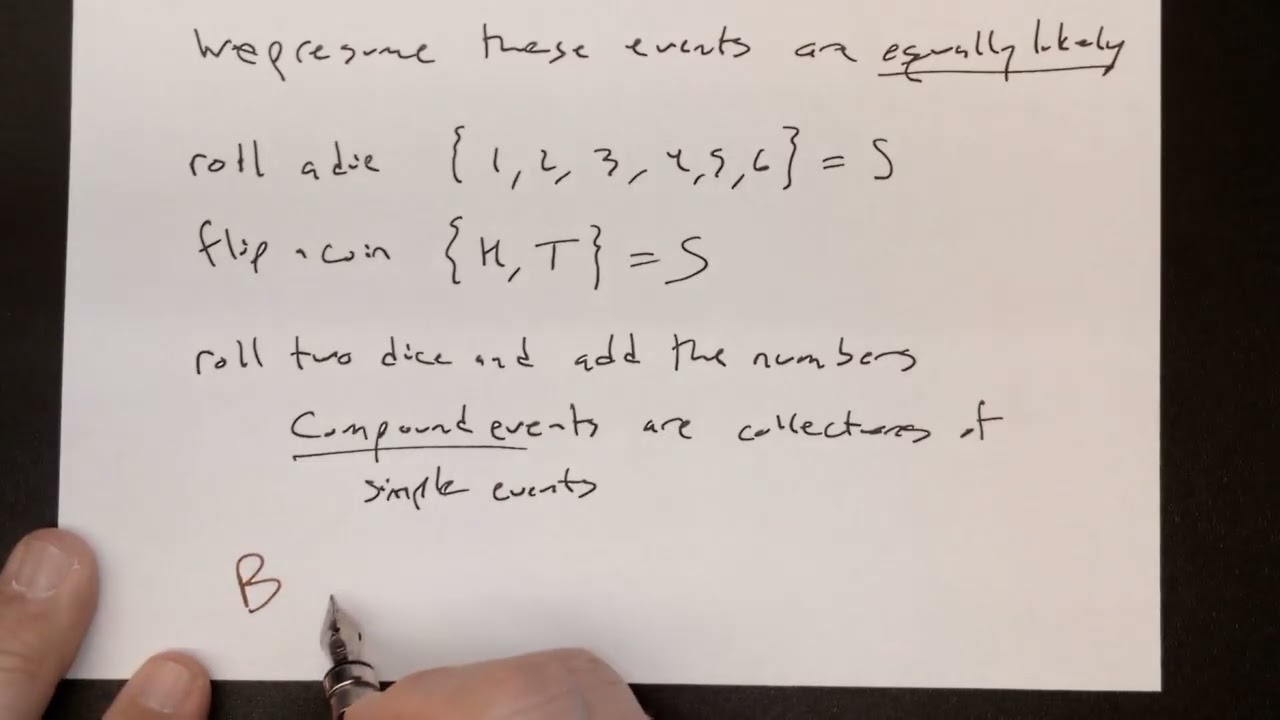 We presume these events are equally likely
roll a die {1, 2, 3, 4, 5, 6} = S
flip a coin {H, T} = S
roll two dice and add the numbers
Compound events are collections of
simple events
B